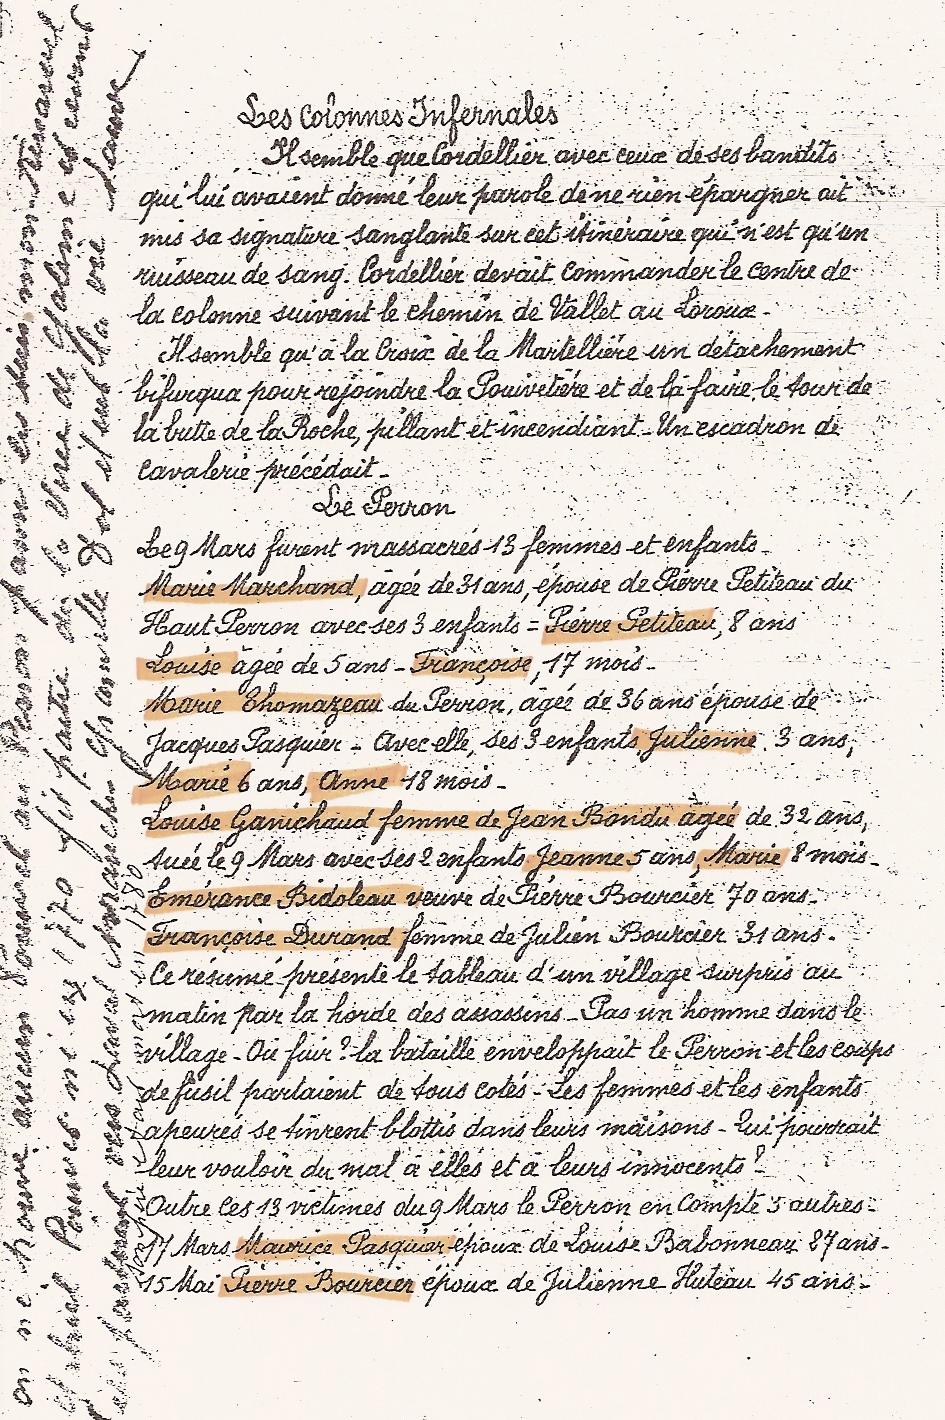 Les Colonnes Infernales
Il semble que Cordellier avec ceux de ses bandits
qui lui avaient donné leur parole de ne rien épargner ait
mis sa signature sanglante sur cet itinéraire qui n'est qu'un
ruisseau de sang. Cordellier devait commander le centre de
la colonne suivant le chemin de Vallet au Loroux -
Il semble qu'à la Croix de la Martellière un détachement
bifurqua pour rejoindre la Pouivetière et de là faire le tour de
la butte de la Roche, pillant et incendiant - Un escadron de
cavalerie précédait -
Le Perron
Le 9 Mars furent massacrés 13 femmes et enfants -
Marie Marchand, agée de 31 ans, épouse de Pierre Petiteau du
Haut Perron avec ses 3 enfants = Pierre Petiteau, 8 ans
Louise âgée de 5 ans - Françoise, 17 mois -
Marie Thomazeau du Perron, agée de 36 ans épouse de
Jacques Pasquier - Avec elle, ses 3 enfants Julienne 3 ans,
Marie 6 ans, Anne 18 mois -
Louise Ganichaud femme de Jean Bondu âgée de 32 ans,
tuée le 9 Mars avec ses 2 enfants Jeanne 5 ans, Marie 8 mois -
Emérance Bidoleau veuve de Pierre Bourcier 70 ans -
Françoise Durand femme de Julien Bourcier 31 ans -
Ce résumé présente le tableau d'un village surpris au
matin par la horde des assassins - Pas un homme dans le
village - Où fuir ? la bataille enveloppait le Perron et les coups
de fusil partaient de tous cotés - Les femmes et les enfants
apeurés se tinrent blottis dans leurs maisons - Qui pourrait
leur vouloir du mal à elles et à leurs innocents ?
Outre ces 13 victimes du 9 Mars le Perron en compte 5 autres -
17 Mars Maurice Pasquier époux de Louise Babonneau 27 ans -
15 Mai Pierre Bourcier époux de Julienne Huteau 45 ans -
on ne trouve aucun au Perron